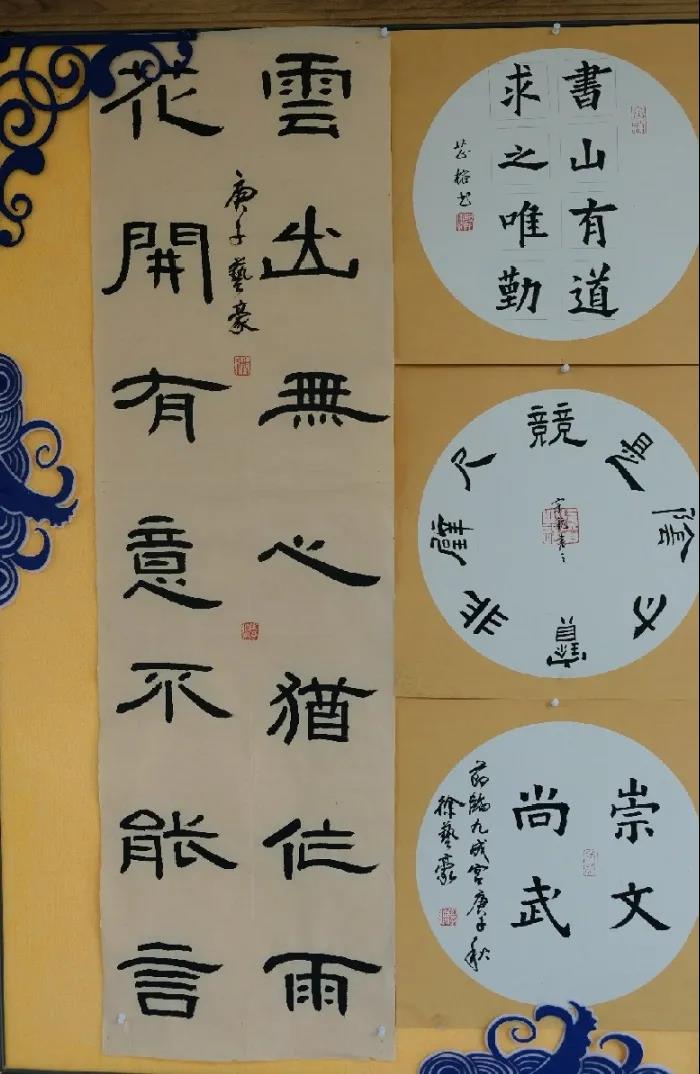 雲出無心猶作雨
花開有意不能言
庚子藝豪
書山有道
求之唯勤
尺璧非寶寸陰是競
崇文
尚武
節臨九成宮庚子秋
徐藝豪